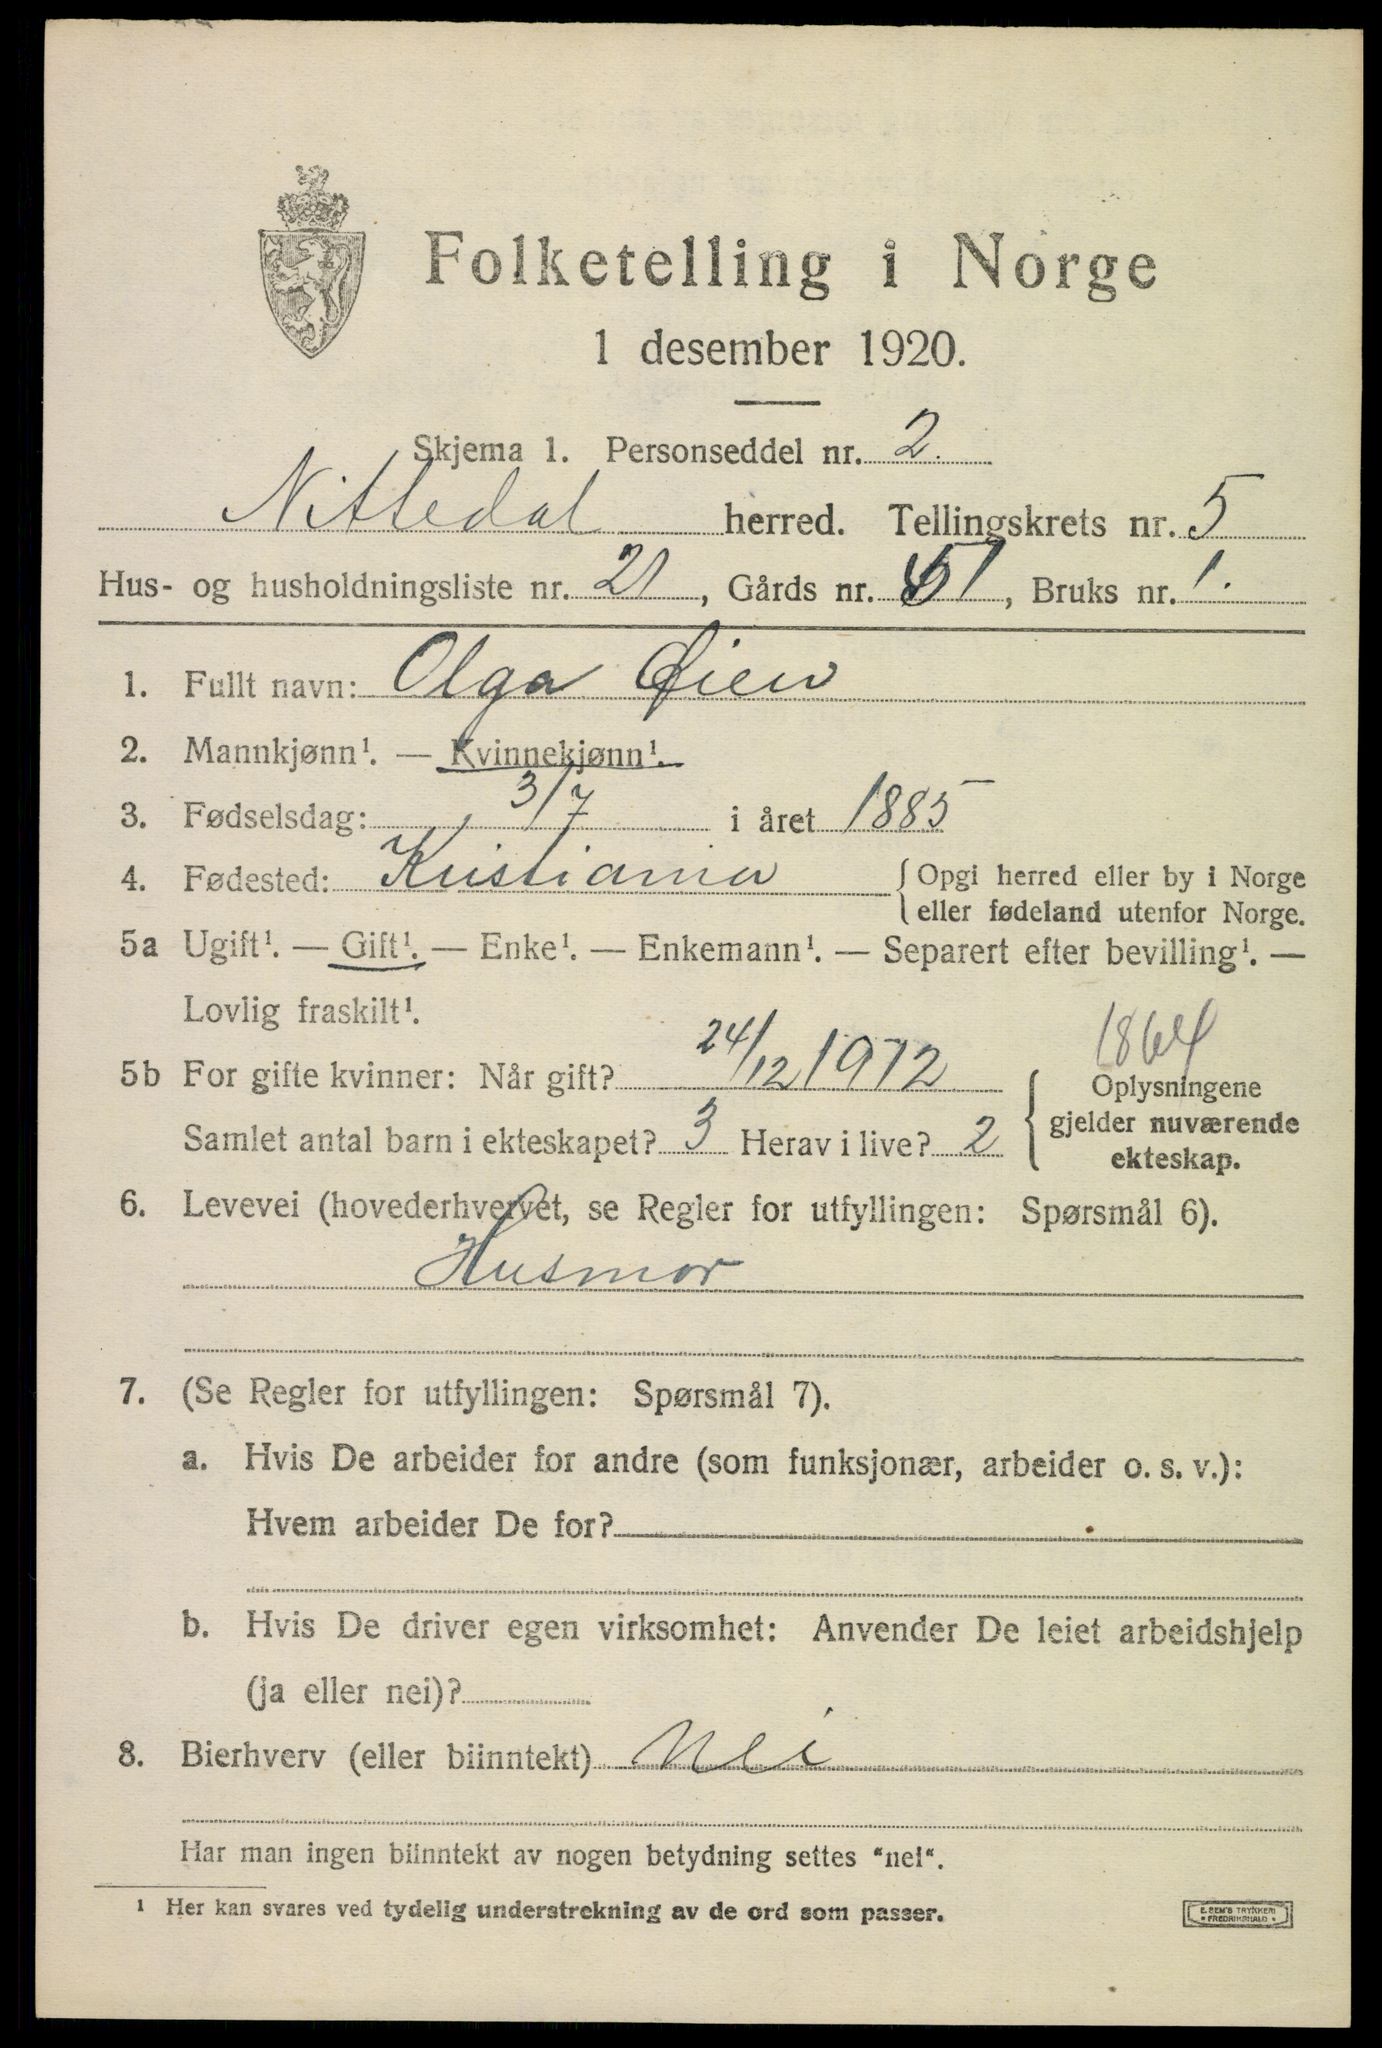 Folketelling i Norge
1 desember 1920.
Skjema 1. Personseddel nr. 2.
Nittedal herred. Tellingskrets nr. 5
Hus- og husholdningsliste nr. 21, Gårds nr. 51, Bruks nr. 1.
1. Fullt navn: Olga Øien
2. Mannkjønn¹. — Kvinnekjønn¹.
3. Fødselsdag: 3/7 i året 1885
4. Fødested: Kristiania { Opgi herred eller by i Norge
eller fødeland utenfor Norge.
5a Ugift¹. — Gift¹. — Enke¹. — Enkemann¹. — Separert efter bevilling¹. —
Lovlig fraskilt¹.
1864
5b For gifte kvinner: Når gift? 24/12 1912
Samlet antal barn i ekteskapet? 3 Herav i live? 2
{ Oplysningene
gjelder nuværende
ekteskap.
6. Levevei (hovederhvervet, se Regler for utfyllingen: Spørsmål 6).
Husmor
7. (Se Regler for utfyllingen: Spørsmål 7).
a. Hvis De arbeider for andre (som funksjonær, arbeider o. s. v.):
Hvem arbeider De for?
b. Hvis De driver egen virksomhet: Anvender De leiet arbeidshjelp
(ja eller nei)?
8. Bierhverv (eller biinntekt) Nei
Har man ingen biinntekt av nogen betydning settes "nei".
¹ Her kan svares ved tydelig understrekning av de ord som passer.
E. SEM'S TRYKKERI
• FREDRIKSHALD •